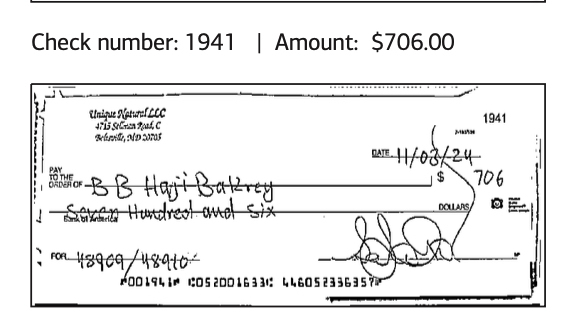 Check number: 1941 | Amount: $706.00
1941
Unique Natural LLC
4715 Road, C
Beltsville, MD 20705
DATE 11/03/24
PAY
TO THE
ORDER OF B B Haji Bakrey
$ 706
Seven Hundred and Six DOLLARS
Bank of America
FOR 48909/48910
⑈001941⑈ ⑆052001633⑆ 446052336357⑈